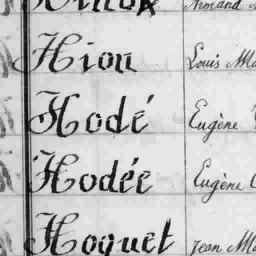 Armand
Hion Louis
Hodé Eugène
Hodée Eugène
Hoquet Jean